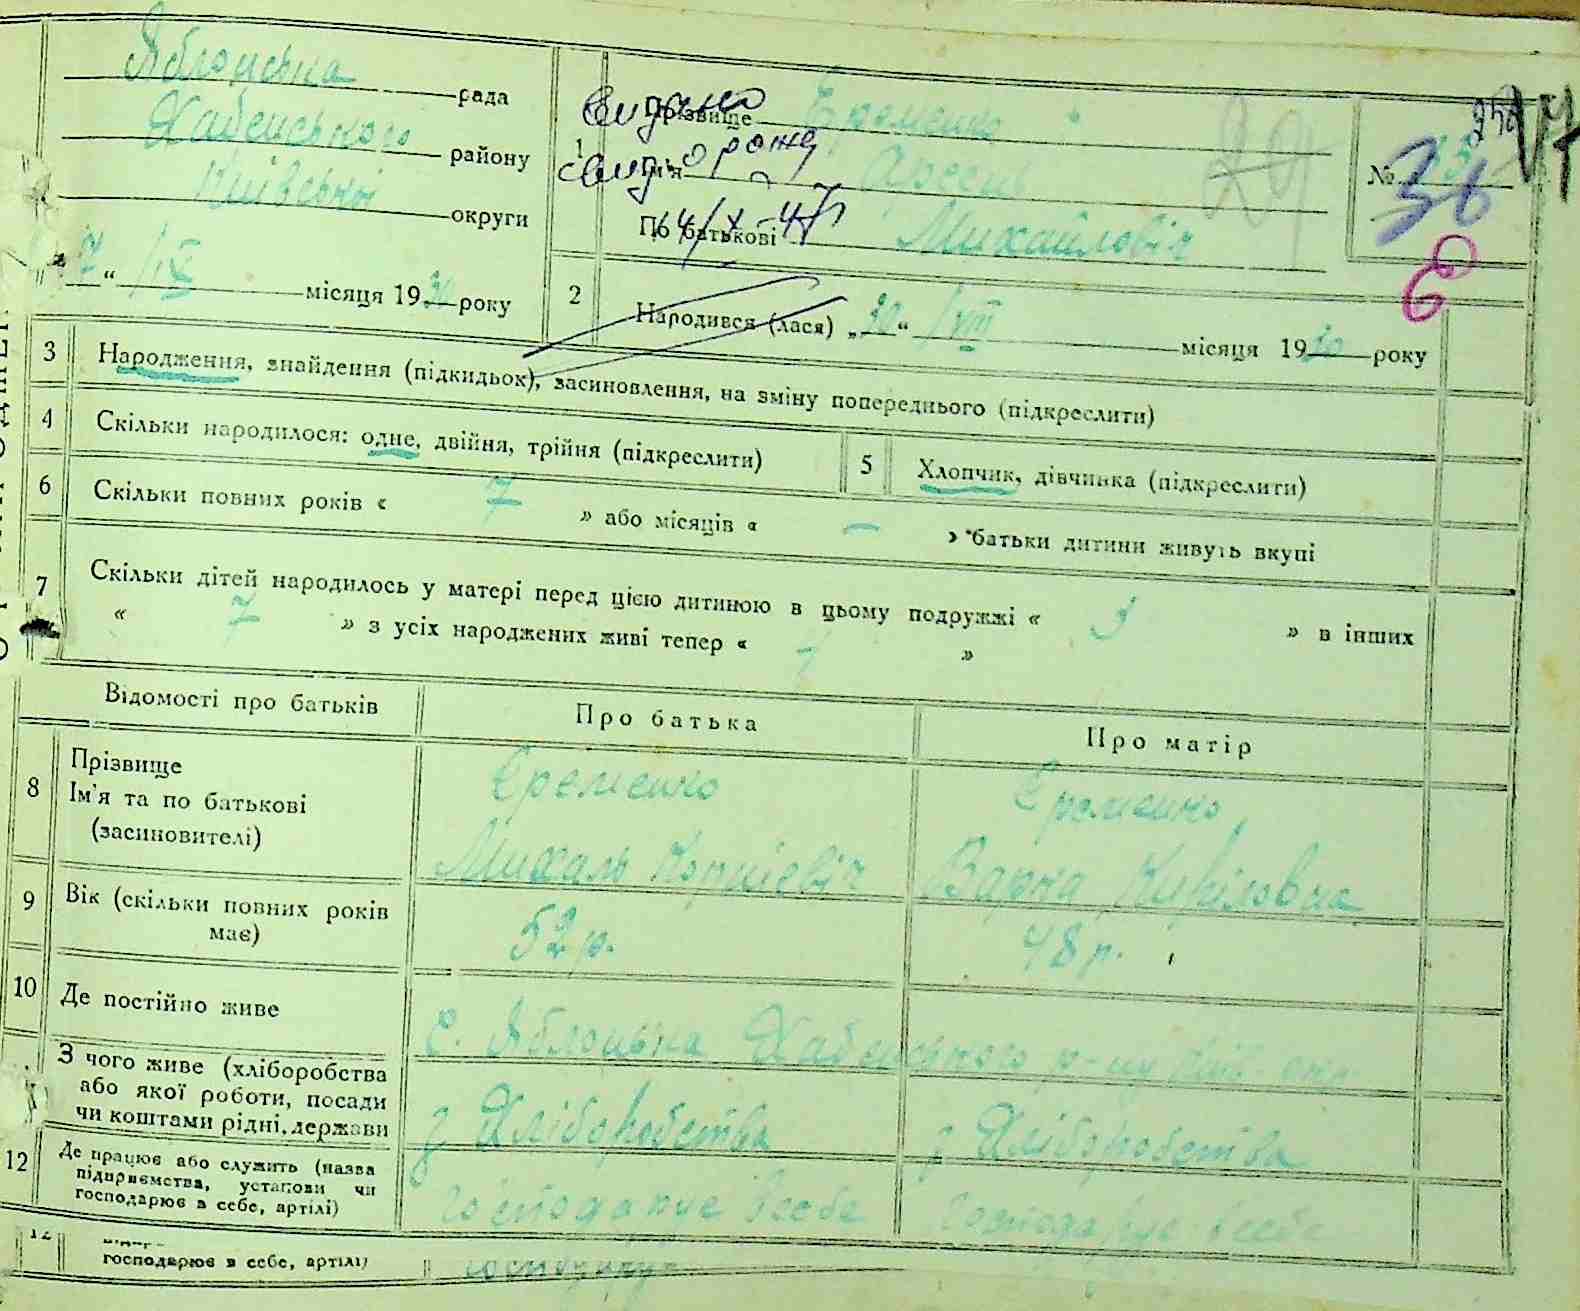 Яблонська рада
Хабенського району
Київської округи
"7" /IX місяця 1930 року
видано
свид. о рожд
4/X 47
1 Прізвище Єременко
Ім'я
По батькові Михайловіч
№ 36
2 Народився (лася) „30“ /VIII місяця 1930 року
3 Народження, знайдення (підкидьок), засиновлення, на зміну попереднього (підкреслити)
4 Скільки народилося: одне, двійня, трійня (підкреслити)
5 Хлопчик, дівчинка (підкреслити)
6 Скільки повних років « 7 » або місяців « — » батьки дитини живуть вкупі
7 Скільки дітей народилось у матері перед цією дитиною в цьому подружжі « 3 » в інших
« 7 » з усіх народжених живі тепер « »
Відомості про батьків Про батька Про матір
8 Прізвище Єременко Єременко
Ім'я та по батькові
(засиновителі) Михаль Корнієвіч Варка Киріловна
9 Вік (скільки повних років
має) 52 р. 48 р.
10 Де постійно живе с. Яблонька Хабенського р-ну Київ. окр.
З чого живе (хліборобства
або якої роботи, посади
чи коштами рідні, держави з Хліборобства з Хліборобства
12 Де працює або служить (назва
підприємства, установи чи
господарює в себе, артілі) Господарує в себе Господарує в себе
12
господарює в себе, артілі)